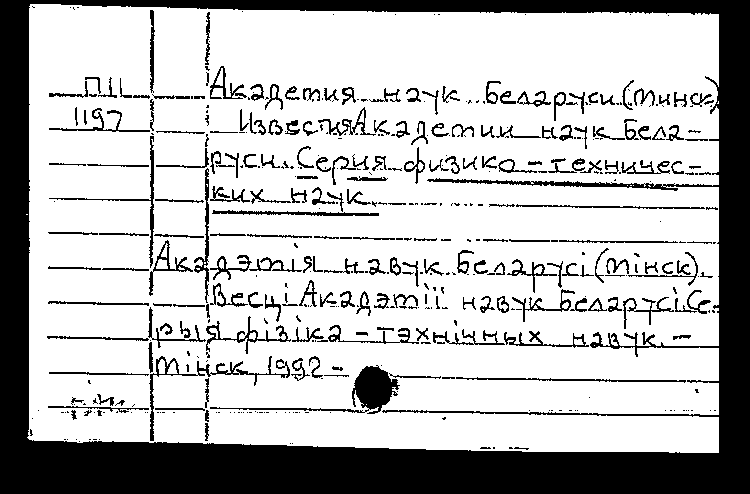 П11 Академия наук Беларуси (Минск)
1197 Известия Академии наук Бела-
руси. Серия физико-техничес-
ких наук.
Акадэмія навук Беларусі (Мінск).
Весці Акадэміі навук Беларусі. Се-
рыя фізіка-тэхнічных навук. -
Мінск, 1992 -